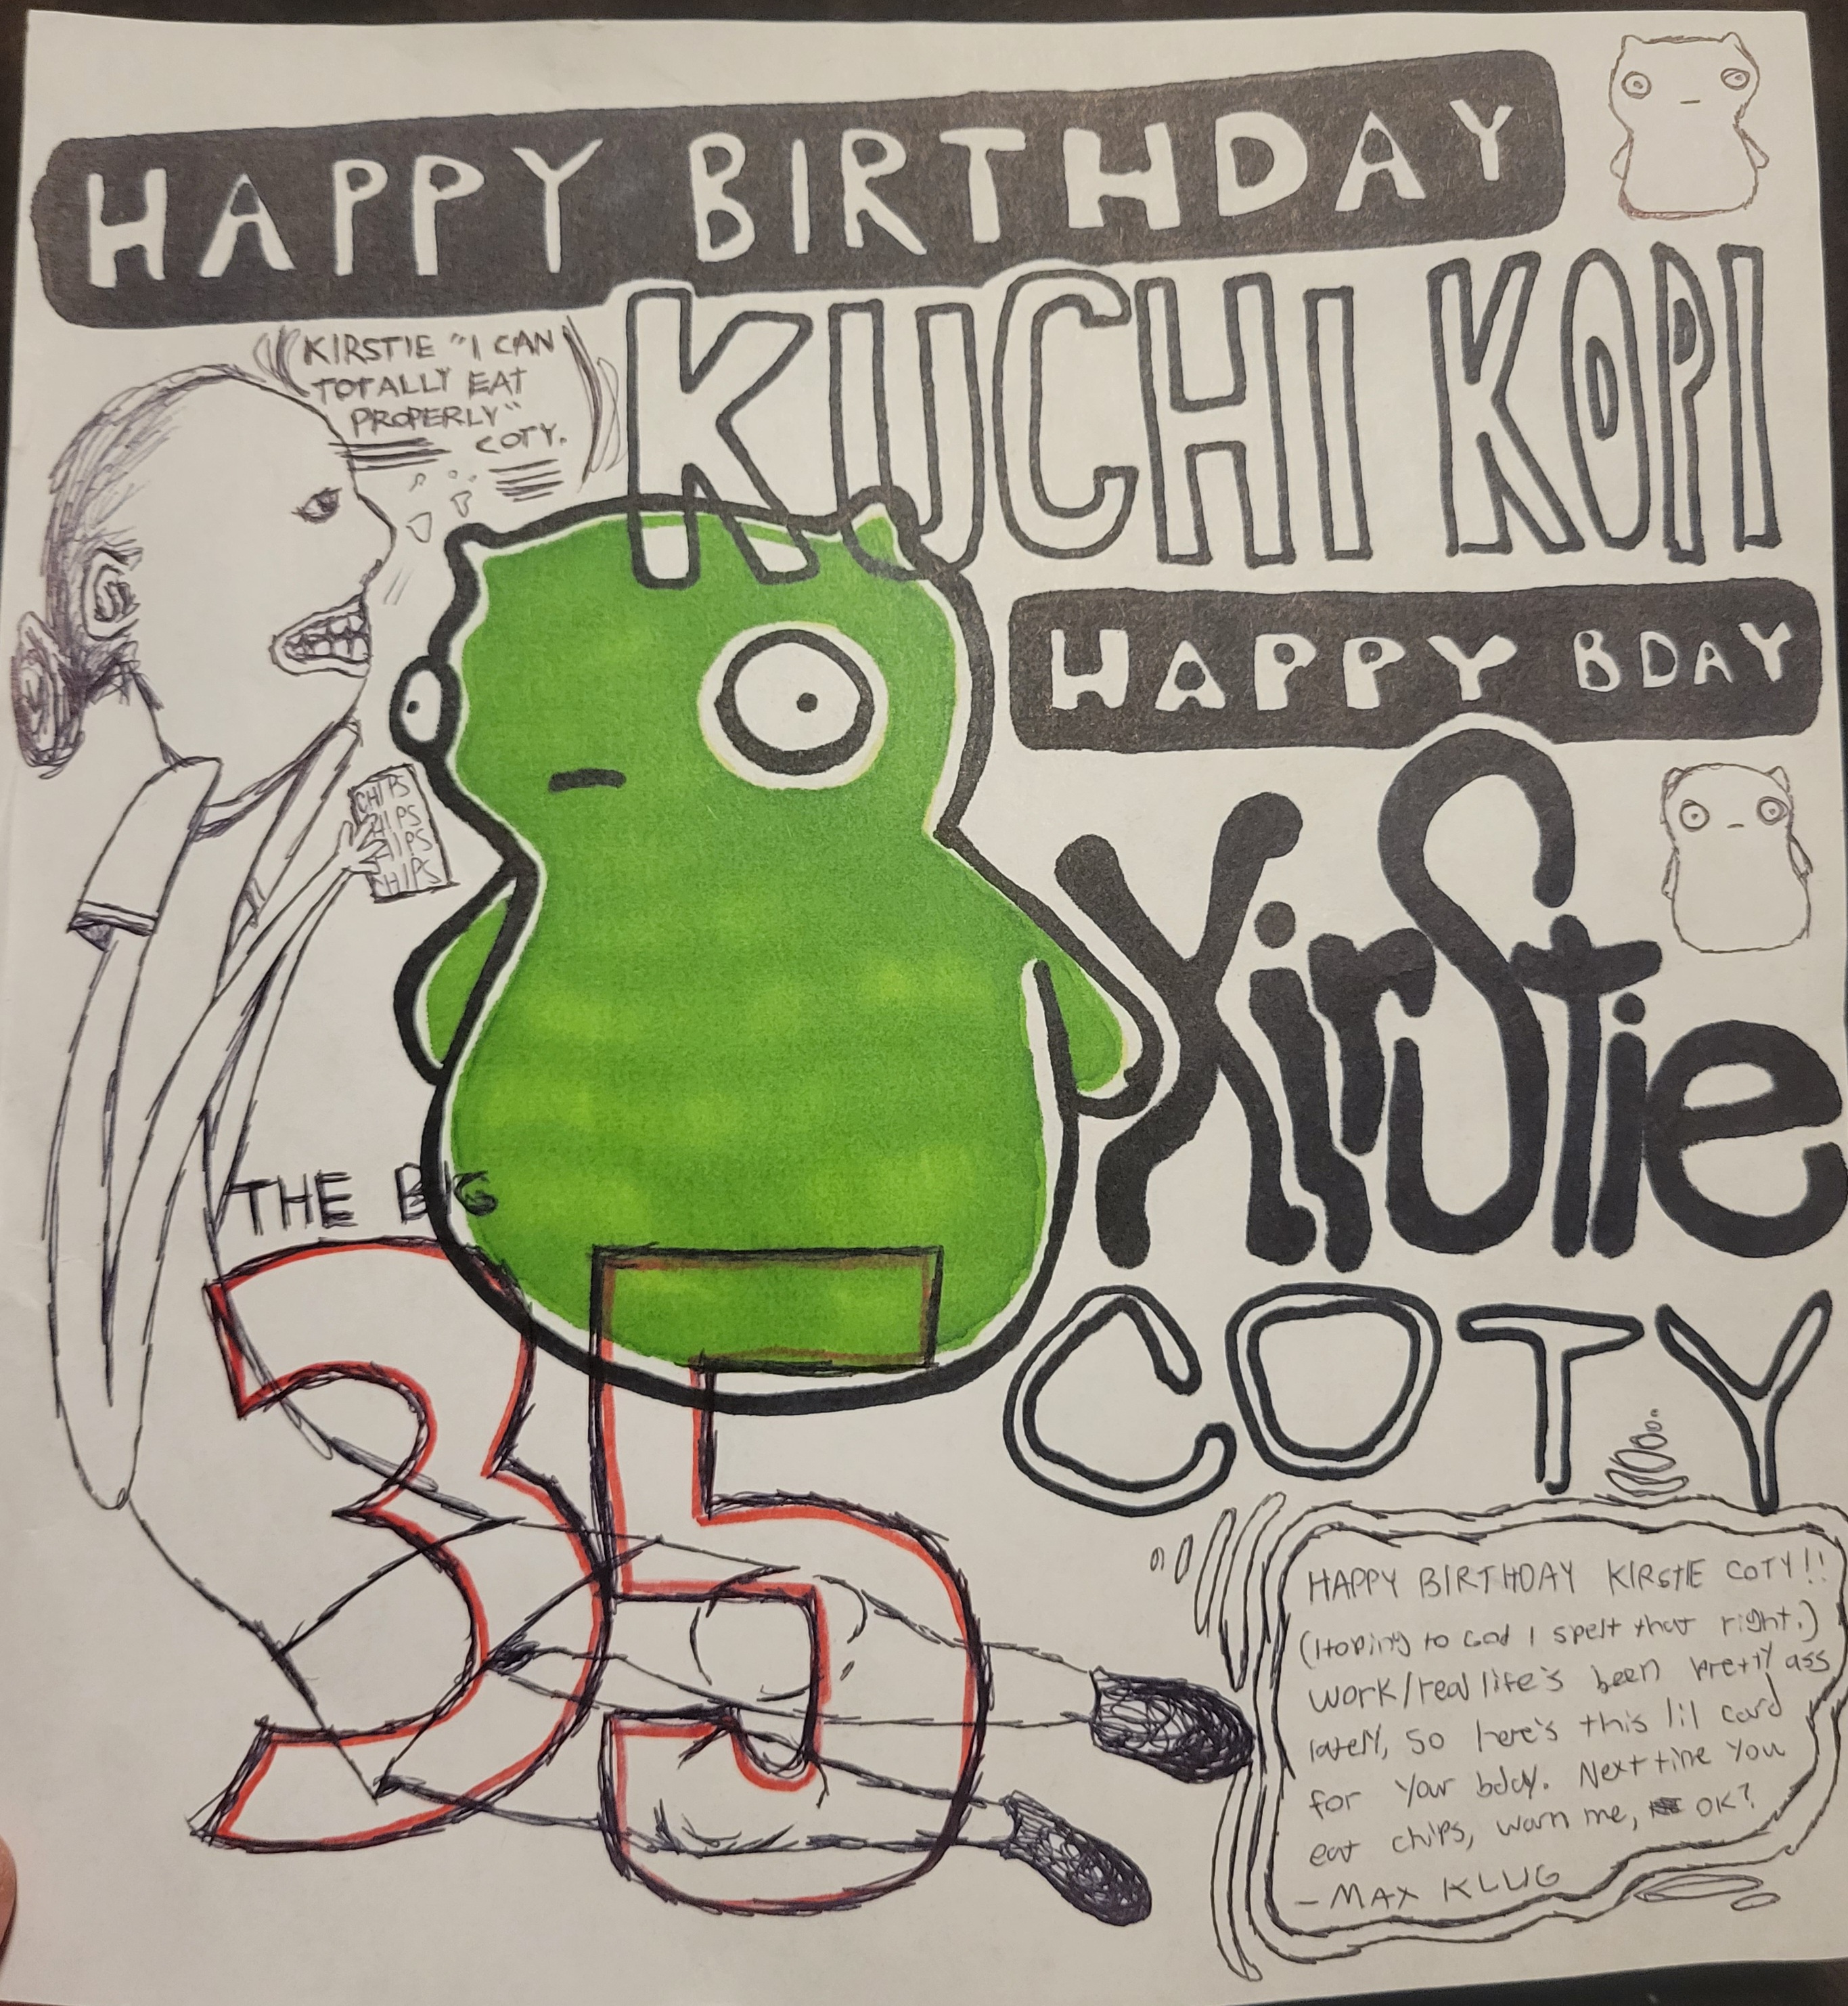 HAPPY BIRTHDAY
KUCHI KOPI
KIRSTIE "I CAN
TOTALLY EAT
PROPERLY"
COTY.
HAPPY BDAY
KirStie
COTY
CHIPS
CHIPS
CHIPS
CHIPS
THE BIG
35
HAPPY BIRTHDAY KIRSTIE COTY!!
(Hoping to God I spelt that right.)
work/real life's been pretty ass
lately, so here's this lil card
for your bday. Next time you
eat chips, warn me, OK?
-MAX KLUG